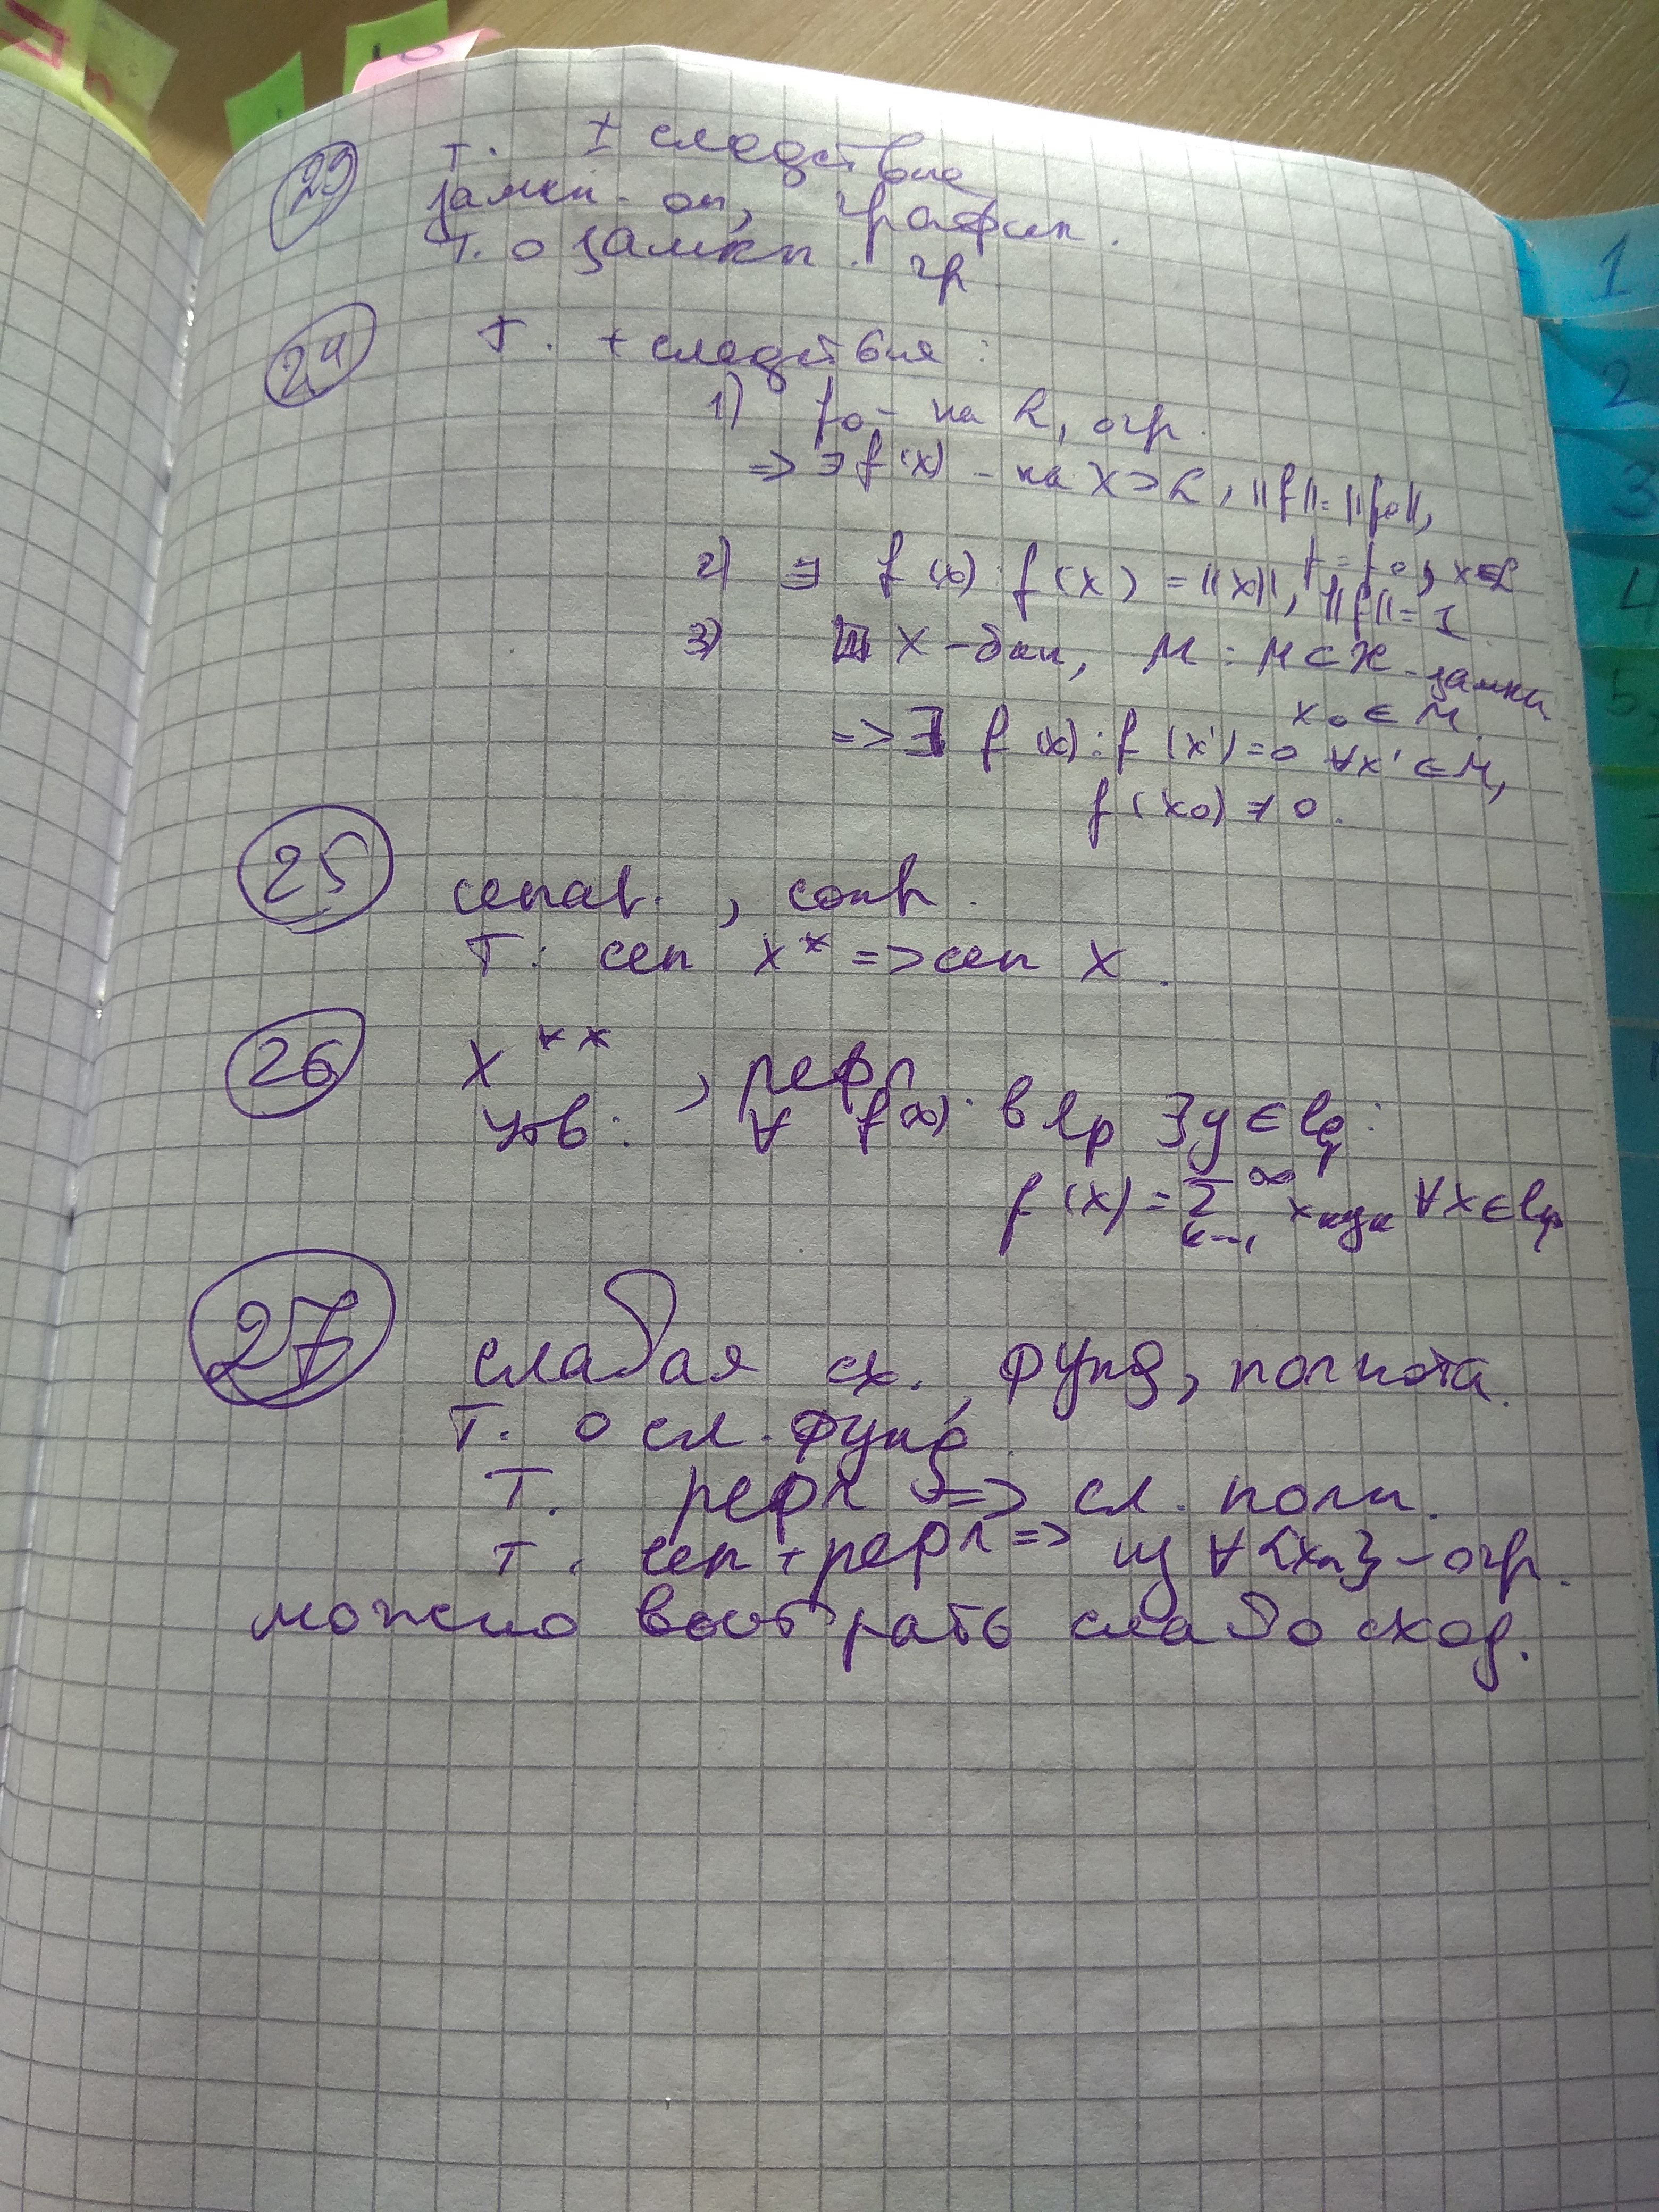 23 т. + следствие
замкн. оп, график.
т. о замкн. гр
24 Т. + следствия:
1) f₀ - на L, огр.
=> ∃ f(x) - на X ⊃ L, ||f|| = ||f₀||,
f = f₀, x∈L
2) ∃ f(x): f(x) = ||x||, ||f|| = 1
3) X - бан, M: M ⊂ X - замкн
x₀ ∈ M
=> ∃ f(x): f(x') = 0 ∀x' ∈ M,
f(x₀) ≠ 0.
25 сепаб. , сопр.
Т: сеп X* => сеп X.
26 X** , рефл
утв: ∀ f(x) в lp ∃y ∈ lq:
f(x) = Σ_{k=1}^∞ xₖyₖ ∀x ∈ lp
27 слабая сх., фунд, полнота.
Т. о сл. фунд.
Т. рефл => сл. полн.
Т. сеп + рефл => из ∀{xₙ} - огр.
можно выбрать слабо сход.
1
2
3
4
5